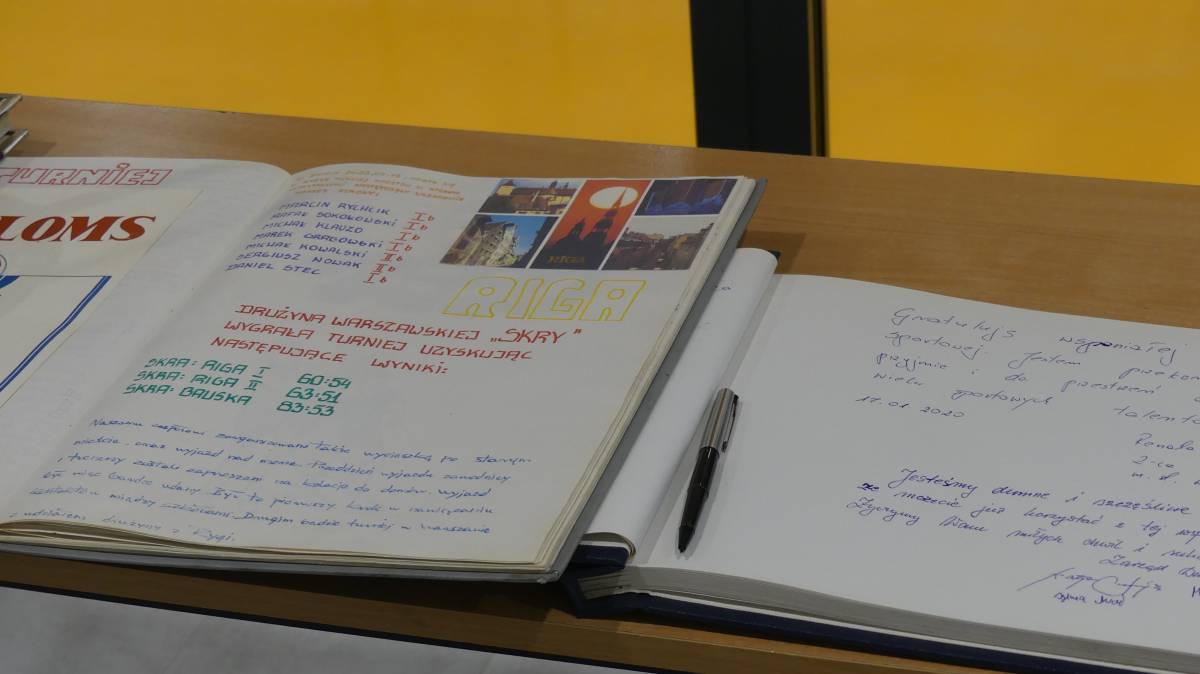 TURNIEJ
LOMS
MARCIN RYCHLIK I b
RAFAŁ SOKOŁOWSKI I b
MICHAŁ KLAUZO I b
MAREK GRABOWSKI I b
MICHAŁ KOWALSKI II b
SERGIUSZ NOWAK II b
DANIEL STEC I b
RIGA
RIGA
DRUŻYNA WARSZAWSKIEJ „SKRY"
WYGRAŁA TURNIEJ UZYSKUJĄC
NASTĘPUJĄCE WYNIKI:
SKRA: RIGA I 60:54
SKRA: RIGA II 63:51
SKRA: BAUSKA 83:53
Naszemu zorganizowano także wycieczkę po starym
mieście, oraz wyjazd nad morze. wyjazdu zawodnicy
i trenerzy zostali zaproszeni na kolację do domów. Wyjazd
był więc bardzo udany. Był to pierwszy krok w nawiązaniu
kontaktów między szkołami. Drugim będzie turniej w Warszawie
z udziałem drużyny z Rygi.
Gratuluję wspaniałej
sportowej. Jestem przekon
przyjmie i do przestrzeń
wielu sportowych talentó
17.01.2020
Jesteśmy dumne i szczęśliwe
że możecie już korzystać z tej wsp
Życzymy Wam miłych chwil i suk
Zarząd